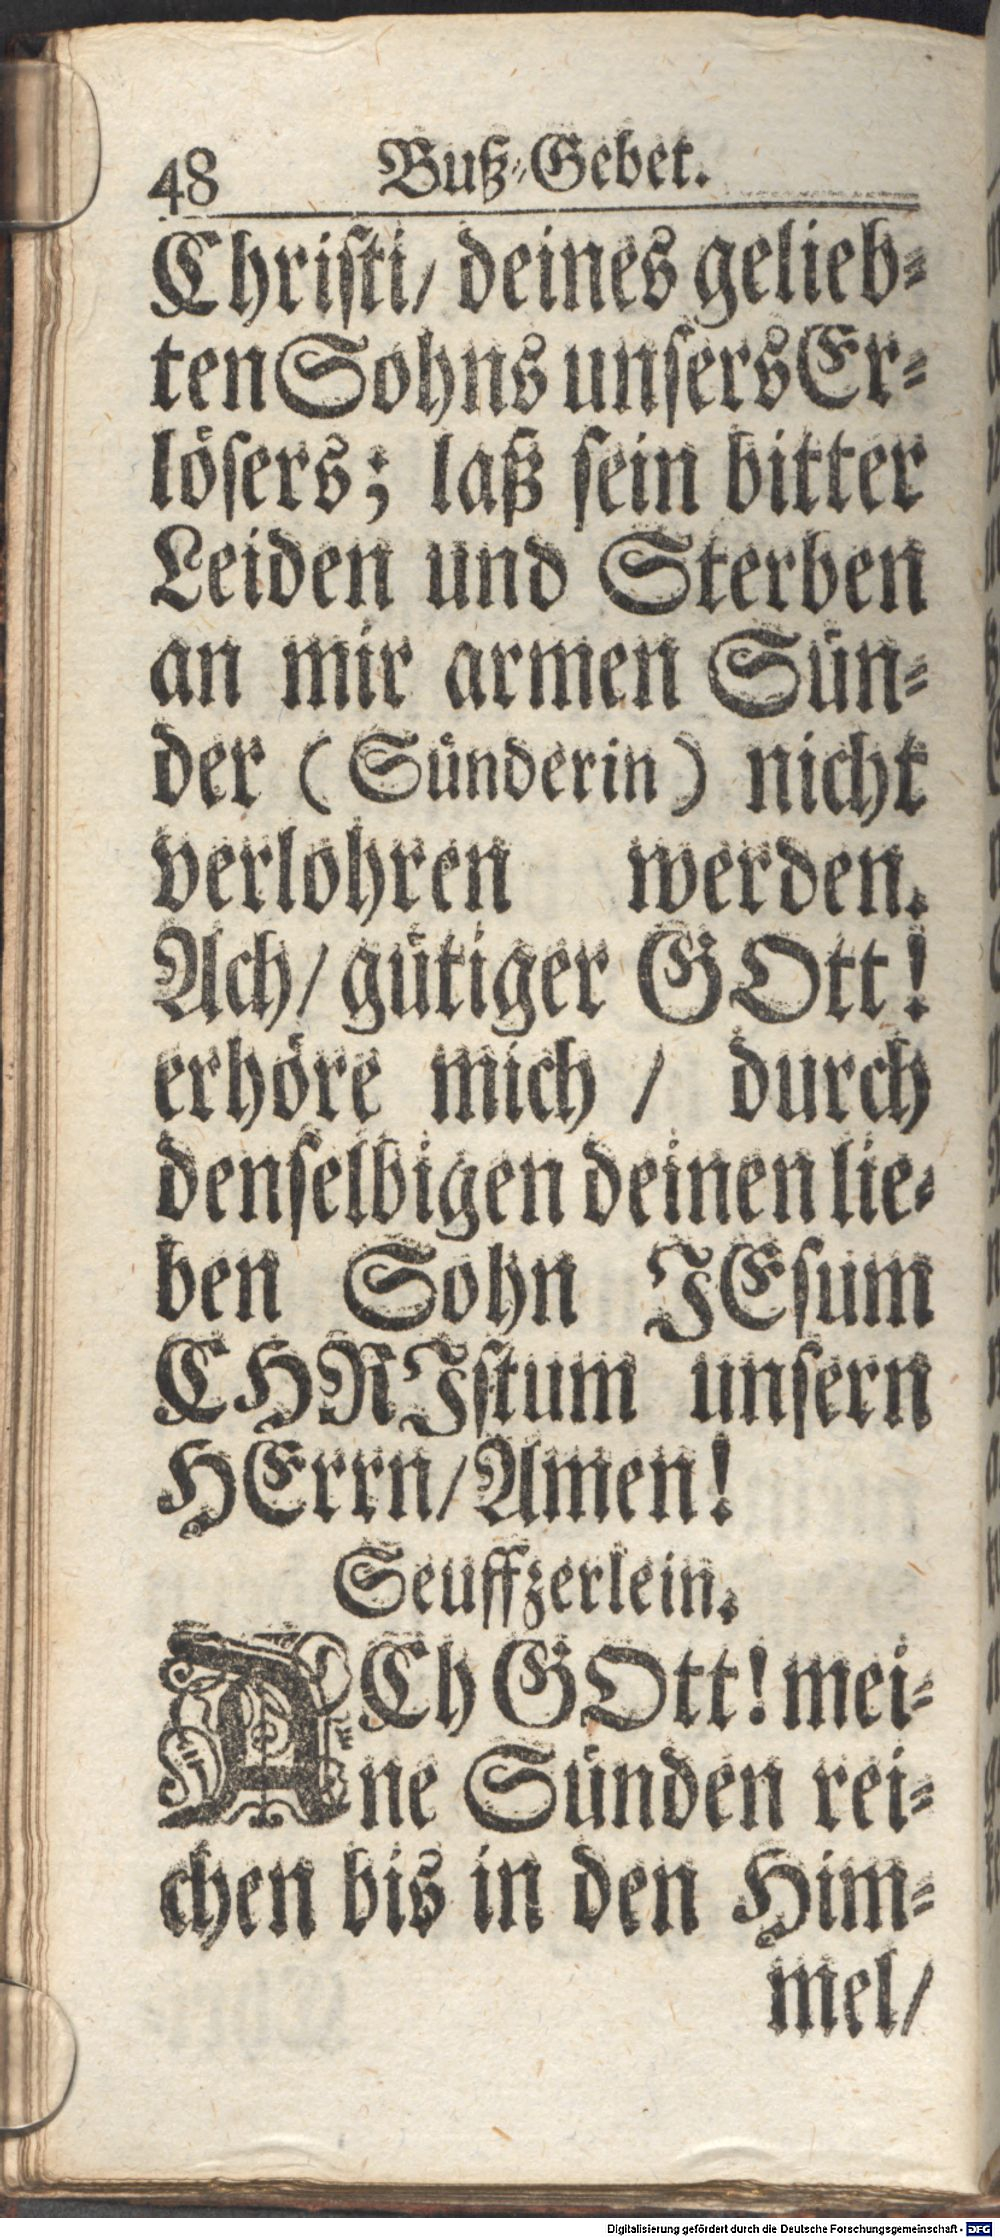 48 Buß-Gebet.
Christi/ deines gelieb-
ten Sohns unsers Er-
lösers; laß sein bitter
Leiden und Sterben
an mir armen Sün-
der (Sünderin) nicht
verlohren werden.
Ach/ gütiger GOtt!
erhöre mich / durch
denselbigen deinen lie-
ben Sohn JEsum
CHRIstum unsern
HErrn/ Amen!
Seuffzerlein.
ACh GOtt! mei-
ne Sünden rei-
chen bis in den Him-
mel/
Digitalisierung gefördert durch die Deutsche Forschungsgemeinschaft - DFG